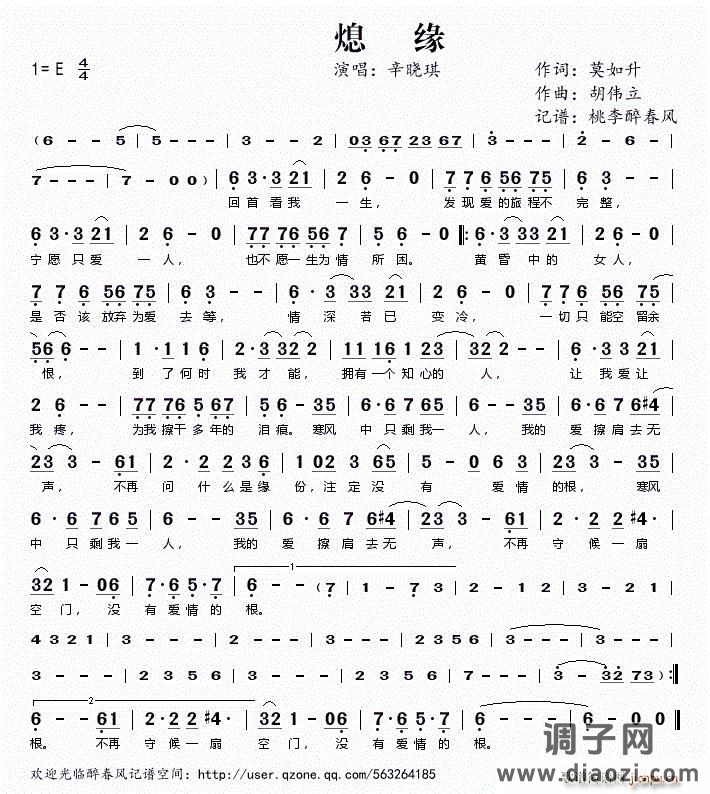 熄 缘
1=E 4/4 演唱：辛晓琪 作词：莫如升
作曲：胡伟立
记谱：桃李醉春风
(6 - - 5 | 5 - - - | 3 - - 2 | 03 67 23 67 | 3 - - - | 2 - 6 -
7 - - - | 7 - 0 0) | 6 3·3 21 | 2 6 - 0 | 7 7 6 56 75 | 6 3 - - |
回首看我 一生， 发现爱的旅程不 完整，
6 3·3 21 | 2 6 - 0 | 77 76 56 7 | 5 6 - 0 |: 6·3 33 21 | 2 6 - 0 |
宁愿只爱 一人， 也不愿一生为情 所困。 黄昏中的 女人，
7 7 6 56 75 | 6 3 - - | 6·3 33 21 | 2 6 - 0 | 7 7 6 56 75 |
是否该放弃为爱 去等， 情深若已 变冷， 一切只能空留余
56 6 - - | 1·1 1 6 | 2·3 32 2 | 11 16 1 23 | 32 2 - - | 6 3·3 21 |
恨， 到了何时 我才能， 拥有一个知心的 人， 让我爱让
2 6 - - | 77 76 5 67 | 5 6 - 35 | 6·6 76 65 | 6 - - 35 | 6·6 76 6#4 |
我疼， 为我擦干多年的 泪痕。寒风 中只剩我一 人，我的 爱擦肩去无
23 3 - 61 | 2 - 2 23 6 | 1 02 3 65 | 5 - 0 63 | 6·5 6 3 | 3 - - 35 |
声， 不再 问什么是缘 份，注定没 有 爱情的根，寒风
6·6 76 65 | 6 - - 35 | 6·6 76 6#4 | 23 3 - 61 | 2·2 2 #4 |
中只剩我一 人， 我的 爱擦肩去无 声， 不再 守候一扇
32 1 - 06 | 7·6 5·7 | 6 - - (7 | 1 - 7 3 | 2 - 1 2 | 3 - - - |
空门，没 有爱情的 根。
4 3 2 1 | 3 - - - | 2 3 5 6 | 3 - - - | 3 - - - | 2 3 5 6 |
3 - - - | 2 3 5 6 | 3 - - - | 2 3 5 6 | 3 - - - | 3 - 32 73) :|
6 - - 61 | 2·2 2 #4 | 32 1 - 06 | 7·6 5·7 | 6 - - - | 6 - - 0 ‖
根。 不再 守候一扇 空门， 没 有爱情的 根。
欢迎光临醉春风记谱空间：http://user.qzone.qq.com/563264185
调子网
www.diaozi.com